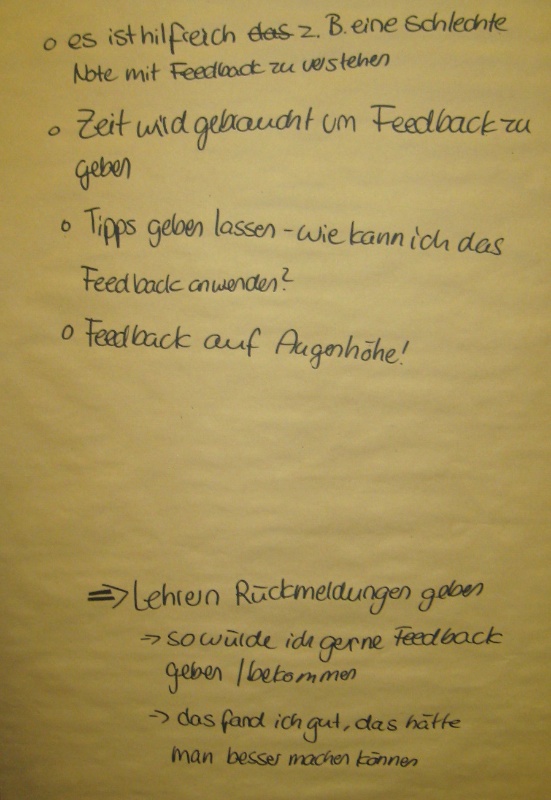 o es ist hilfreich das z. B. eine schlechte
Note mit Feedback zu verstehen
o Zeit wird gebraucht um Feedback zu
geben
o Tipps geben lassen - wie kann ich das
Feedback anwenden?
o Feedback auf Augenhöhe!
=> Lehrern Rückmeldungen geben
-> so würde ich gerne Feedback
geben / bekommen
-> das fand ich gut, das hätte
man besser machen können